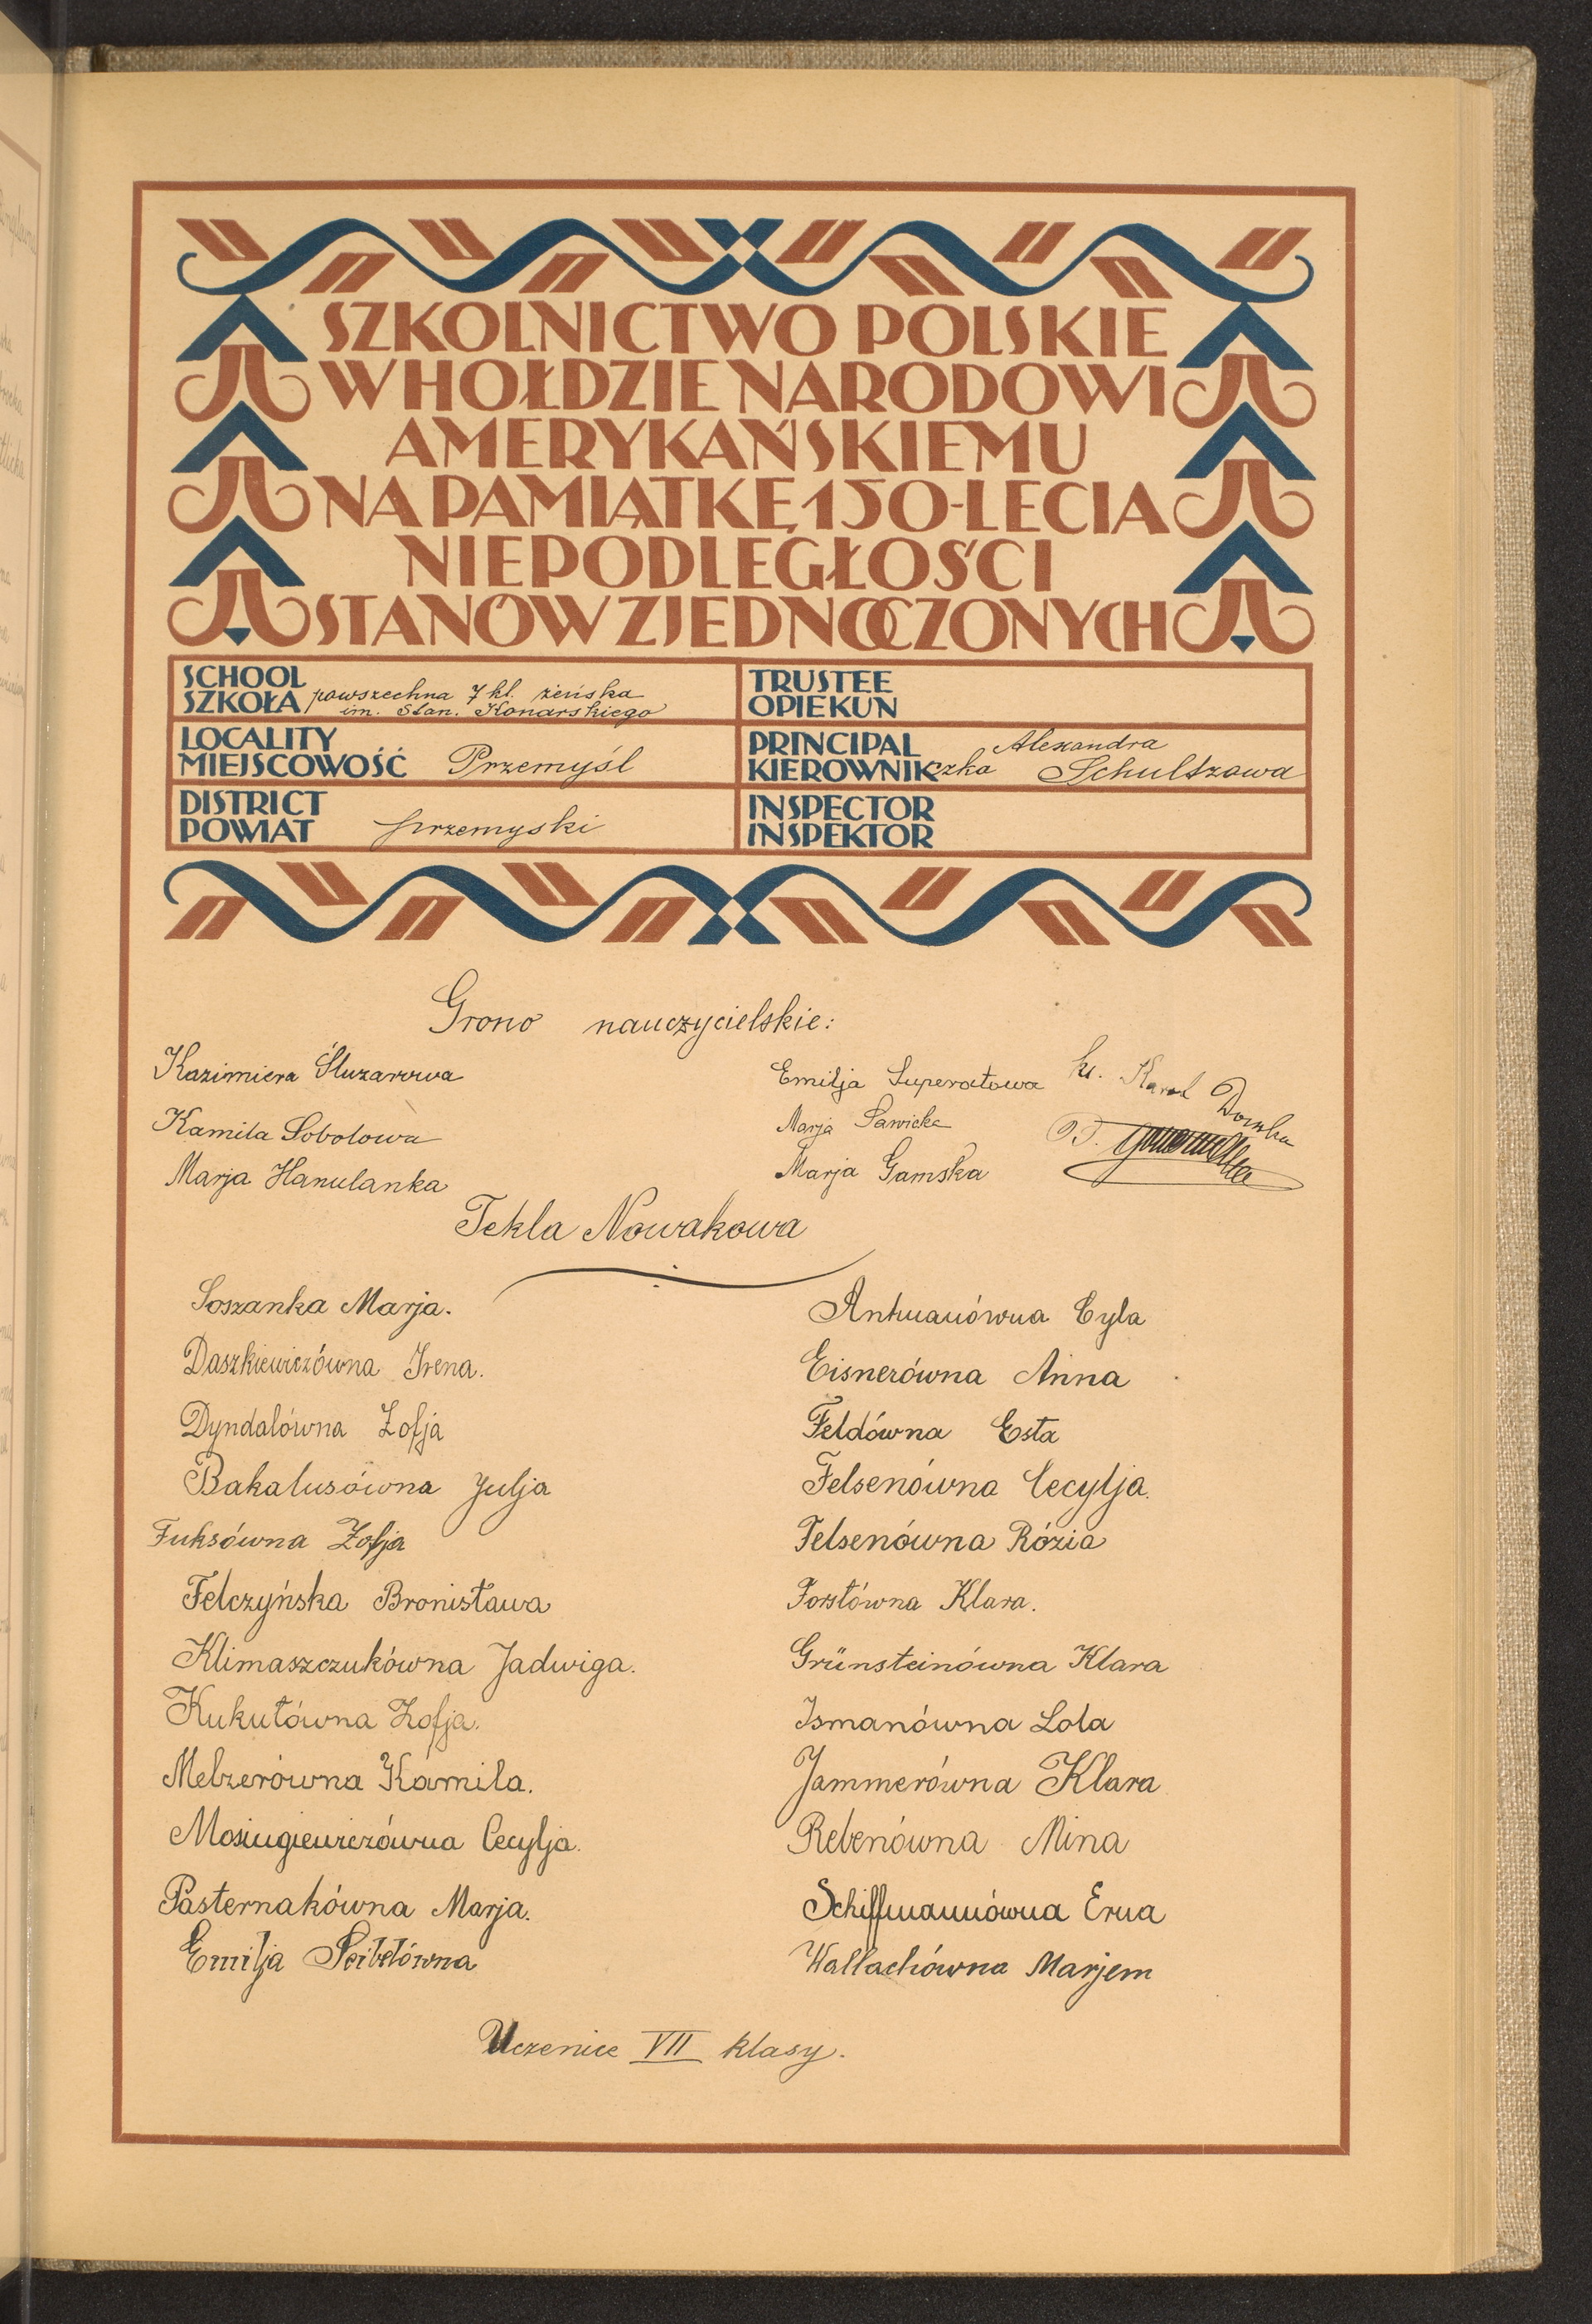 SZKOLNICTWO POLSKIE
W HOŁDZIE NARODOWI
AMERYKAŃSKIEMU
NA PAMIĄTKĘ 150-LECIA
NIEPODLEGŁOŚCI
STANÓW ZJEDNOCZONYCH
SCHOOL
SZKOŁA powszechna 7 kl. żeńska
im. Stan. Konarskiego
TRUSTEE
OPIEKUN
LOCALITY
MIEJSCOWOŚĆ Przemyśl
PRINCIPAL Alexandra
KIEROWNIKczka Schultzowa
DISTRICT
POWIAT przemyski
INSPECTOR
INSPEKTOR
Grono nauczycielskie:
Kazimiera Śluzarowa
Kamila Sobolowa
Marja Hanulanka
Emilja Superatowa
Marja Sawicka
Marja Gamska
ks. Karol
Tekla Nowakowa
Soszanka Marja.
Daszkiewiczówna Irena.
Dyndalówna Zofja
Bakalusówna Julja
Fuksówna Zofja
Felczyńska Bronisława
Klimaszczukówna Jadwiga.
Kukułówna Zofja.
Melzerówna Kamila.
Mosiugiewiczówna Cecylja.
Pasternakówna Marja.
Emilja Seibelówna
Antmanówna Cyla
Eisnerówna Anna
Feldówna Esta
Felsenówna Cecylja.
Felsenówna Rózia
Forstówna Klara.
Grünsteinówna Klara
Ismanówna Lola
Jammerówna Klara
Rebenówna Mina
Schiffmannówna Erna
Wallachówna Marjem
Uczenice VII klasy.